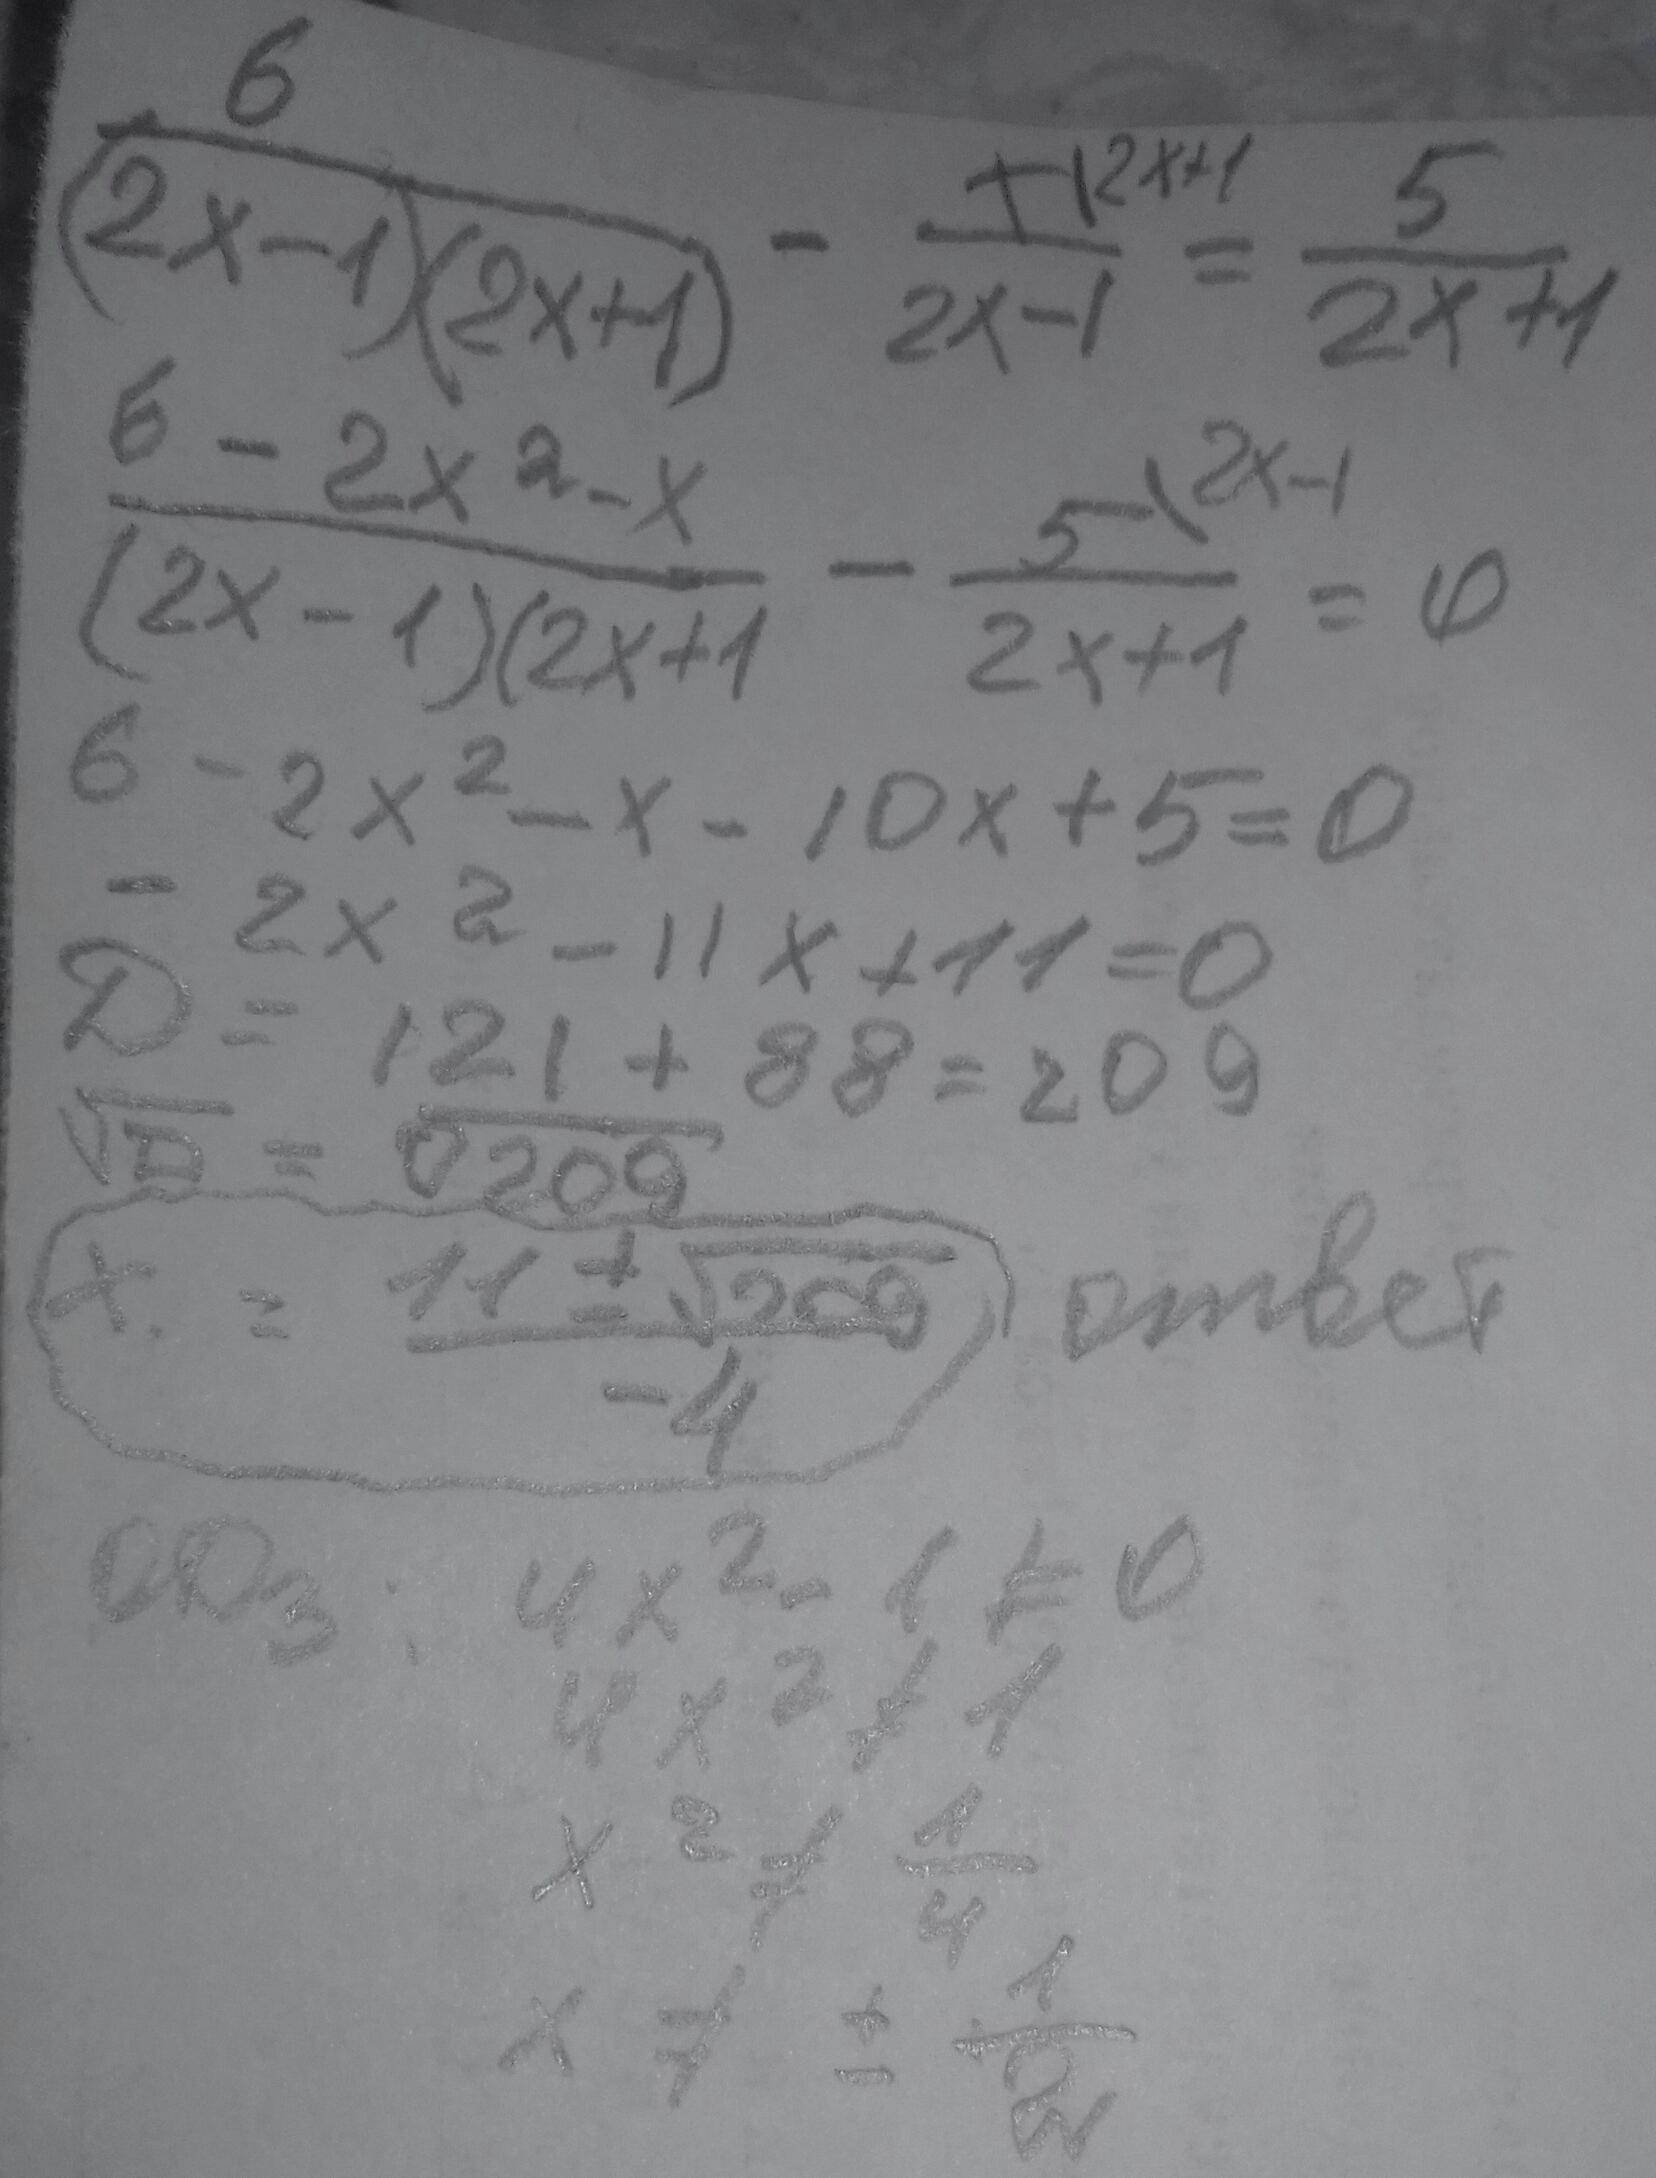 6/((2x-1)(2x+1)) - x\^(2x+1)/(2x-1) = 5/(2x+1)
(6-2x²-x)/((2x-1)(2x+1) - 5\^(2x-1)/(2x+1) = 0
6-2x²-x-10x+5=0
-2x²-11x+11=0
D=121+88=209
√D=√209
x.=(11±√209)/-4 ответ
ОДЗ: 4x²-1≠0
4x²≠1
x²≠1/4
x≠±1/2